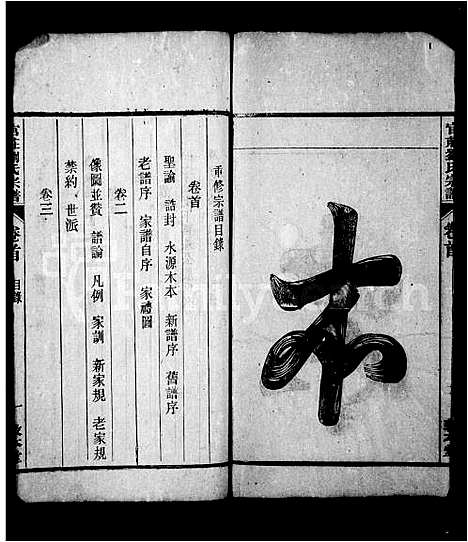 本
重修宗譜目錄
卷首
聖諭 誥封 水源木本 新譜序 舊譜序
老譜序 家譜自序 家禮圖
卷二
像圖並贊 譜論 凡例 家訓 新家規 老家規
禁約 世派
卷三
卷之首 目錄 一
FamilySearch